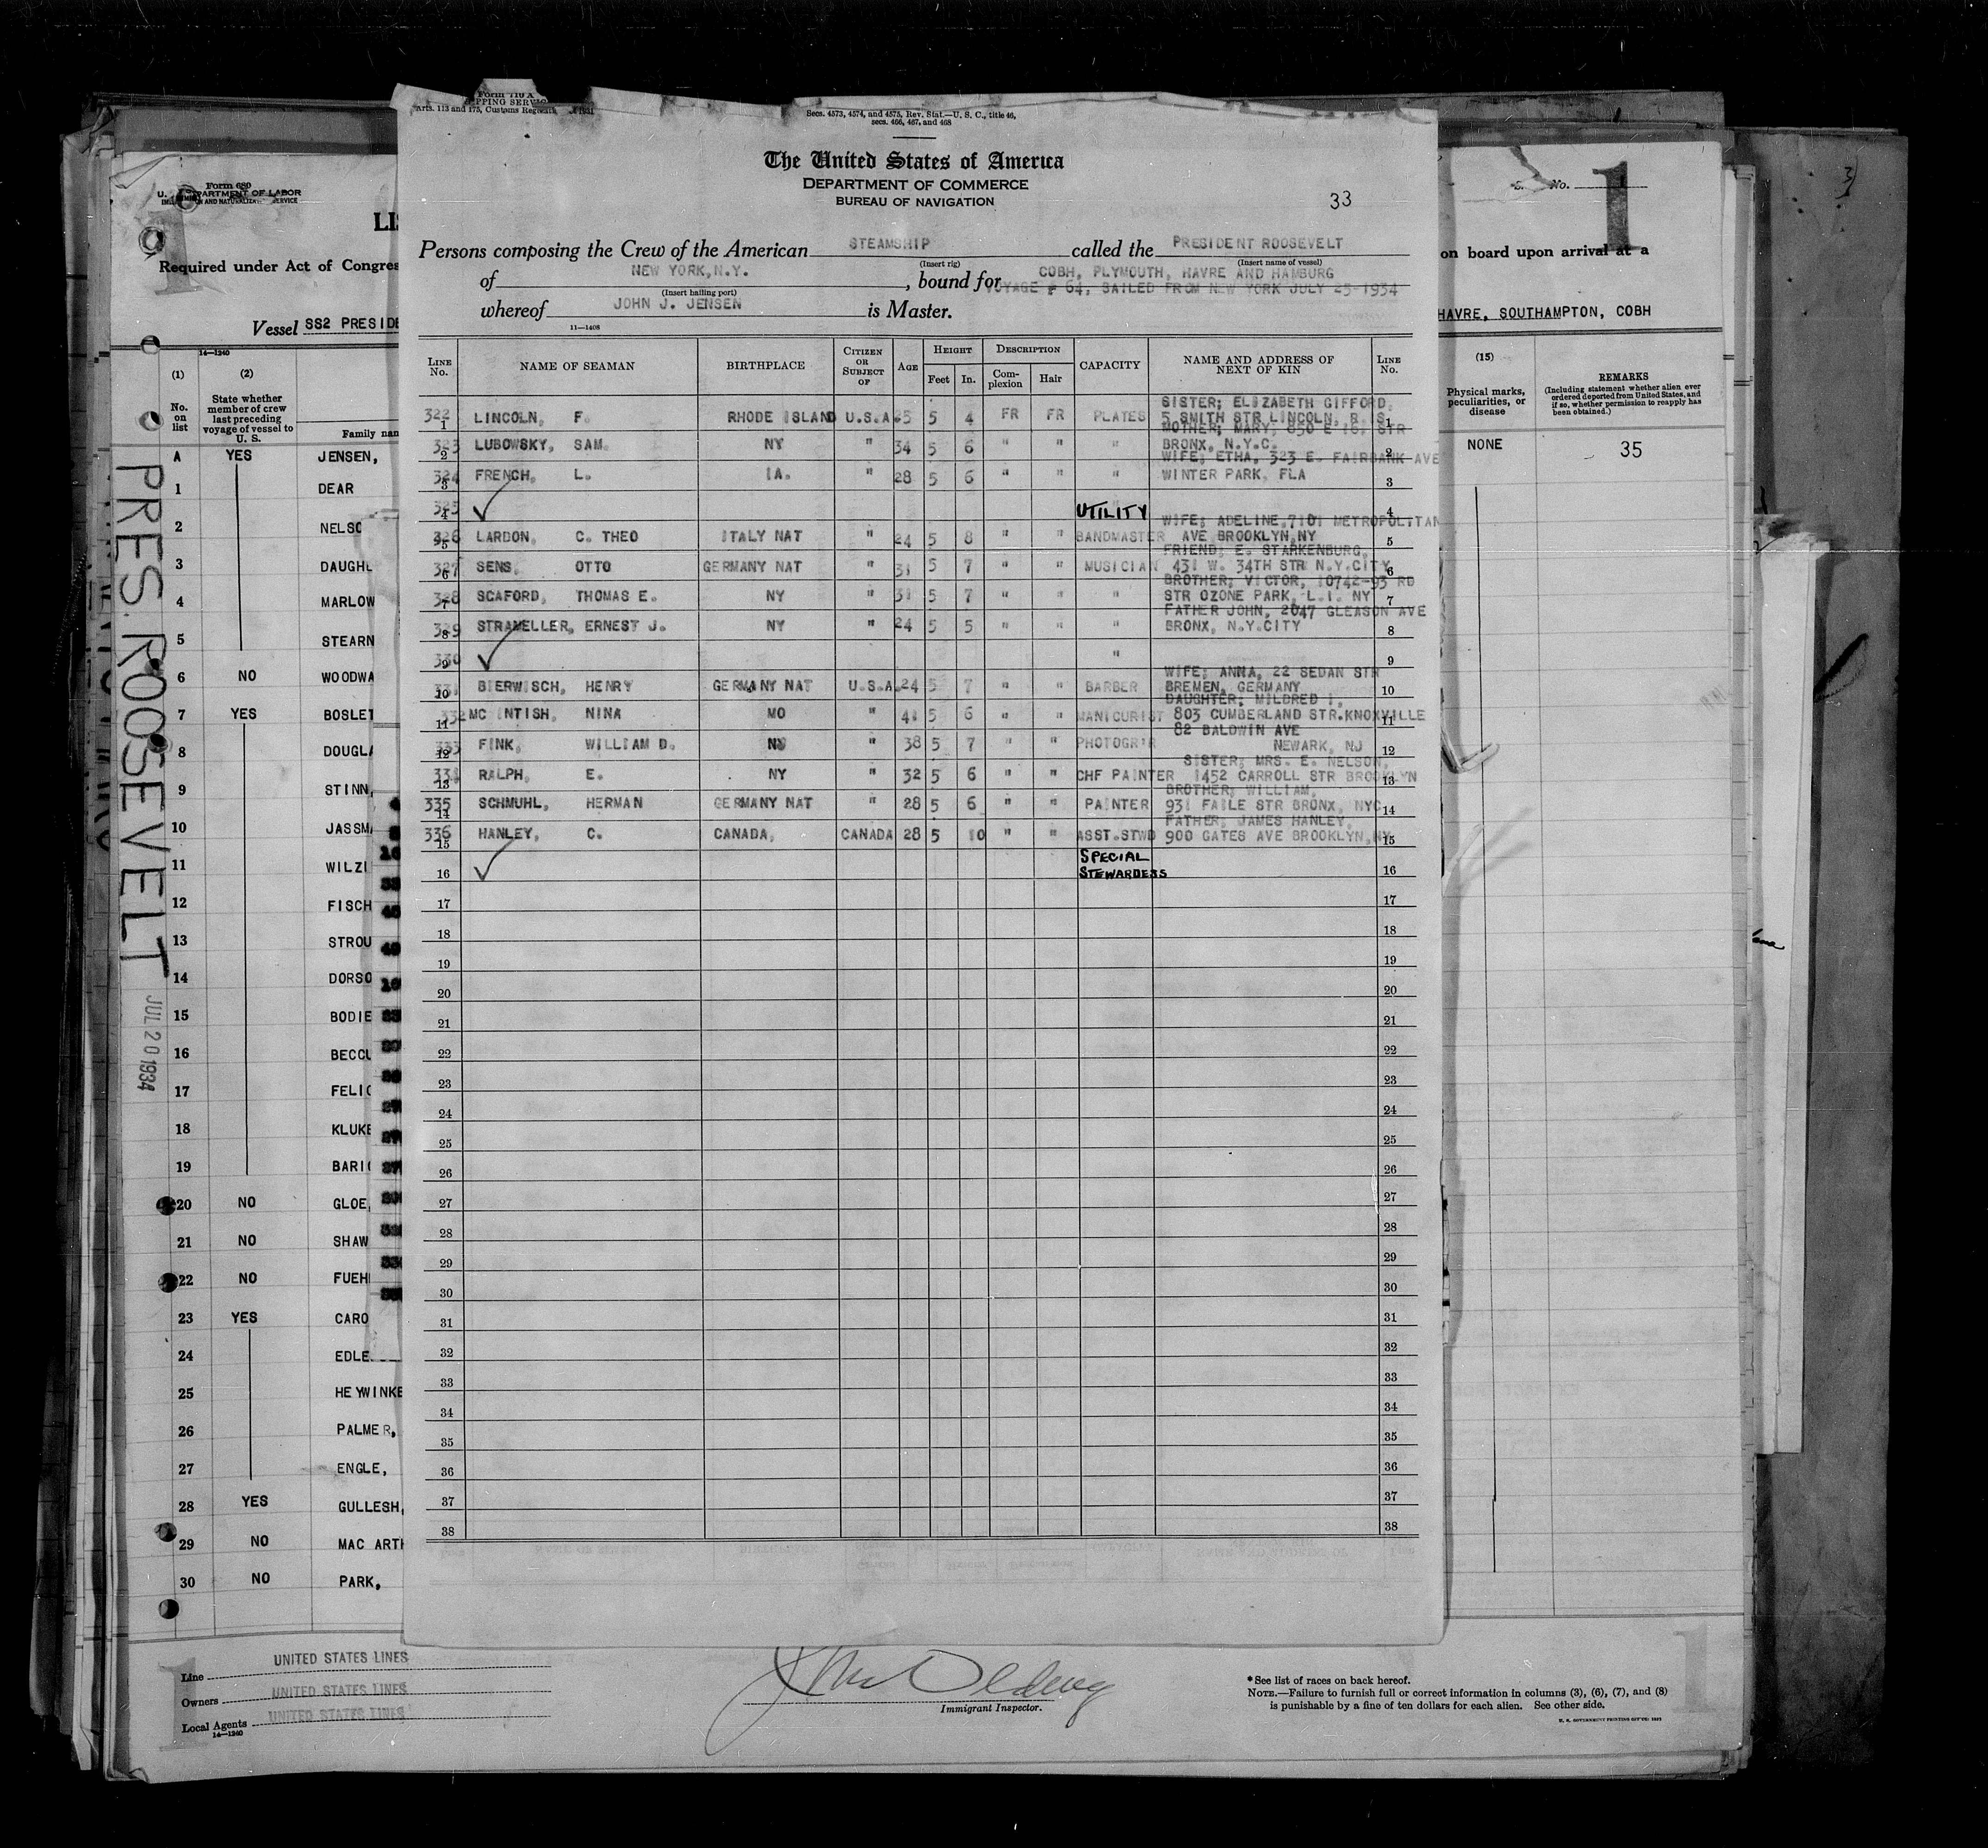 Form 710 A
SHIPPING SERVICE
Arts. 113 and 175, Customs Regs. 1931
Secs. 4573, 4574, and 4575, Rev. Stat.—U. S. C., title 46,
secs. 466, 467, and 468
The United States of America
DEPARTMENT OF COMMERCE
BUREAU OF NAVIGATION
33
Persons composing the Crew of the American STEAMSHIP called the PRESIDENT ROOSEVELT
(Insert rig) (Insert name of vessel)
of NEW YORK,N.Y. , bound for COBH, PLYMOUTH, HAVRE AND HAMBURG
(Insert hailing port) VOYAGE # 64, SAILED FROM NEW YORK JULY 25-1934
whereof JOHN J. JENSEN is Master.
11—1408
LINE No. NAME OF SEAMAN BIRTHPLACE CITIZEN OR SUBJECT OF AGE HEIGHT Feet In. DESCRIPTION Complexion Hair CAPACITY NAME AND ADDRESS OF NEXT OF KIN LINE No.
SISTER; ELIZABETH GIFFORD,
322 1 LINCOLN, F. RHODE ISLAND U.S.A. 25 5 4 FR FR PLATES 5 SMITH STR LINCOLN, R.IS. 1
MOTHER; MARY, 850 E STR
323 2 LUBOWSKY, SAM. NY " 34 5 6 " " " BRONX, N.Y.C. 2
WIFE; ETHA, 323 E. FAIRBANK AVE
324 3 FRENCH, L. IA. " 28 5 6 " " " WINTER PARK, FLA 3
325 4 ✓ UTILITY 4
WIFE; ADELINE,7101 METROPOLITAN
326 5 LARDON, C. THEO ITALY NAT " 24 5 8 " " BANDMASTER AVE BROOKLYN,NY 5
FRIEND; E. STARKENBURG,
327 6 SENS, OTTO GERMANY NAT " 31 5 7 " " MUSICIAN 431 W. 34TH STR N.Y.CITY 6
BROTHER; VICTOR, 10742-93 RD
328 7 SCAFORD, THOMAS E. NY " 31 5 7 " " " STR OZONE PARK, L.I. NY 7
FATHER JOHN, 2047 GLEASON AVE
329 8 STRAMELLER, ERNEST J. NY " 24 5 5 " " " BRONX, N.Y.CITY 8
330 9 ✓ " 9
WIFE; ANNA, 22 SEDAN STR
331 10 BIERWISCH, HENRY GERMANY NAT U.S.A. 24 5 7 " " BARBER BREMEN, GERMANY 10
DAUGHTER; MILDRED I,
332 11 MC INTISH, NINA MO " 41 5 6 " " MANICURIST 803 CUMBERLAND STR.KNOXVILLE 11
82 BALDWIN AVE
333 12 FINK, WILLIAM D. NY " 38 5 7 " " PHOTOGR'R NEWARK, NJ 12
SISTER; MRS. E. NELSON,
334 13 RALPH, E. NY " 32 5 6 " " CHF PAINTER 1452 CARROLL STR BROOKLYN 13
BROTHER; WILLIAM,
335 14 SCHMUHL, HERMAN GERMANY NAT " 28 5 6 " " PAINTER 931 FAILE STR BRONX, NYC 14
FATHER, JAMES HANLEY,
336 15 HANLEY, C. CANADA, CANADA 28 5 10 " " ASST.STWD 900 GATES AVE BROOKLYN,NY 15
16 ✓ SPECIAL STEWARDESS 16
17 17
18 18
19 19
20 20
21 21
22 22
23 23
24 24
25 25
26 26
27 27
28 28
29 29
30 30
31 31
32 32
33 33
34 34
35 35
36 36
37 37
38 38
Form 689
U. S. DEPARTMENT OF LABOR
IMMIGRATION AND NATURALIZATION SERVICE
LIS
Required under Act of Congre
Vessel SS2 PRESIDE
14—1240
(1) (2)
No. on list
State whether member of crew last preceding voyage of vessel to U. S.
Family nam
A YES JENSEN,
1 DEAR
2 NELSO
3 DAUGH
4 MARLOW
5 STEARN
6 NO WOODWA
7 YES BOSLET
8 DOUGLA
9 STINN,
10 JASSMA
11 WILZI
12 FISCH
13 STROU
14 DORSO
15 BODIE
16 BECCU
17 FELIC
18 KLUKE
19 BARI
20 NO GLOE,
21 NO SHAW
22 NO FUEH
23 YES CARO
24 EDLE
25 HEYWINKE
26 PALMER,
27 ENGLE,
28 YES GULLESH,
29 NO MAC ARTH
30 NO PARK,
PRES. ROOSEVELT
JUL 20 1934
Line UNITED STATES LINES
Owners UNITED STATES LINES
Local Agents UNITED STATES LINES
14—1240
Immigrant Inspector.
No. 1
1
on board upon arrival at a
HAVRE, SOUTHAMPTON, COBH
(15)
Physical marks, peculiarities, or disease
REMARKS
(Including statement whether alien ever ordered deported from United States, and if so, whether permission to reapply has been obtained.)
NONE
35
*See list of races on back hereof.
NOTE.—Failure to furnish full or correct information in columns (3), (6), (7), and (8)
is punishable by a fine of ten dollars for each alien. See other side.
U. S. GOVERNMENT PRINTING OFFICE: 1932